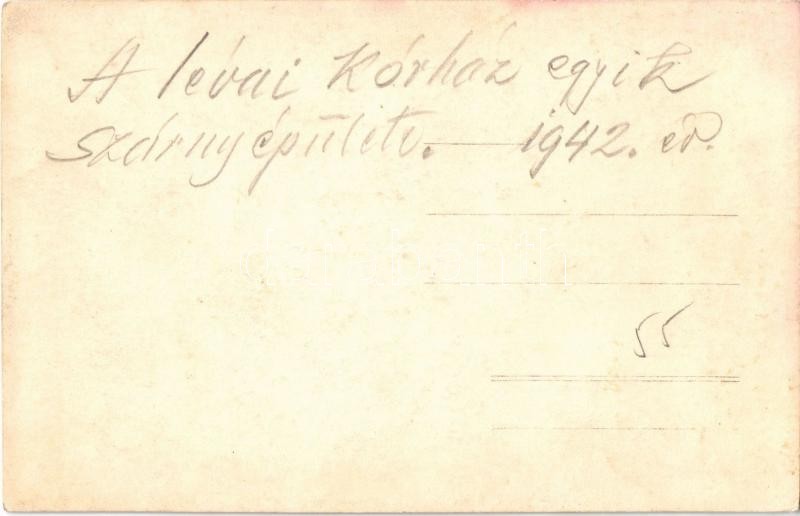 A lévai Kórház egyik
szárnyépülete. 1942. év.
55